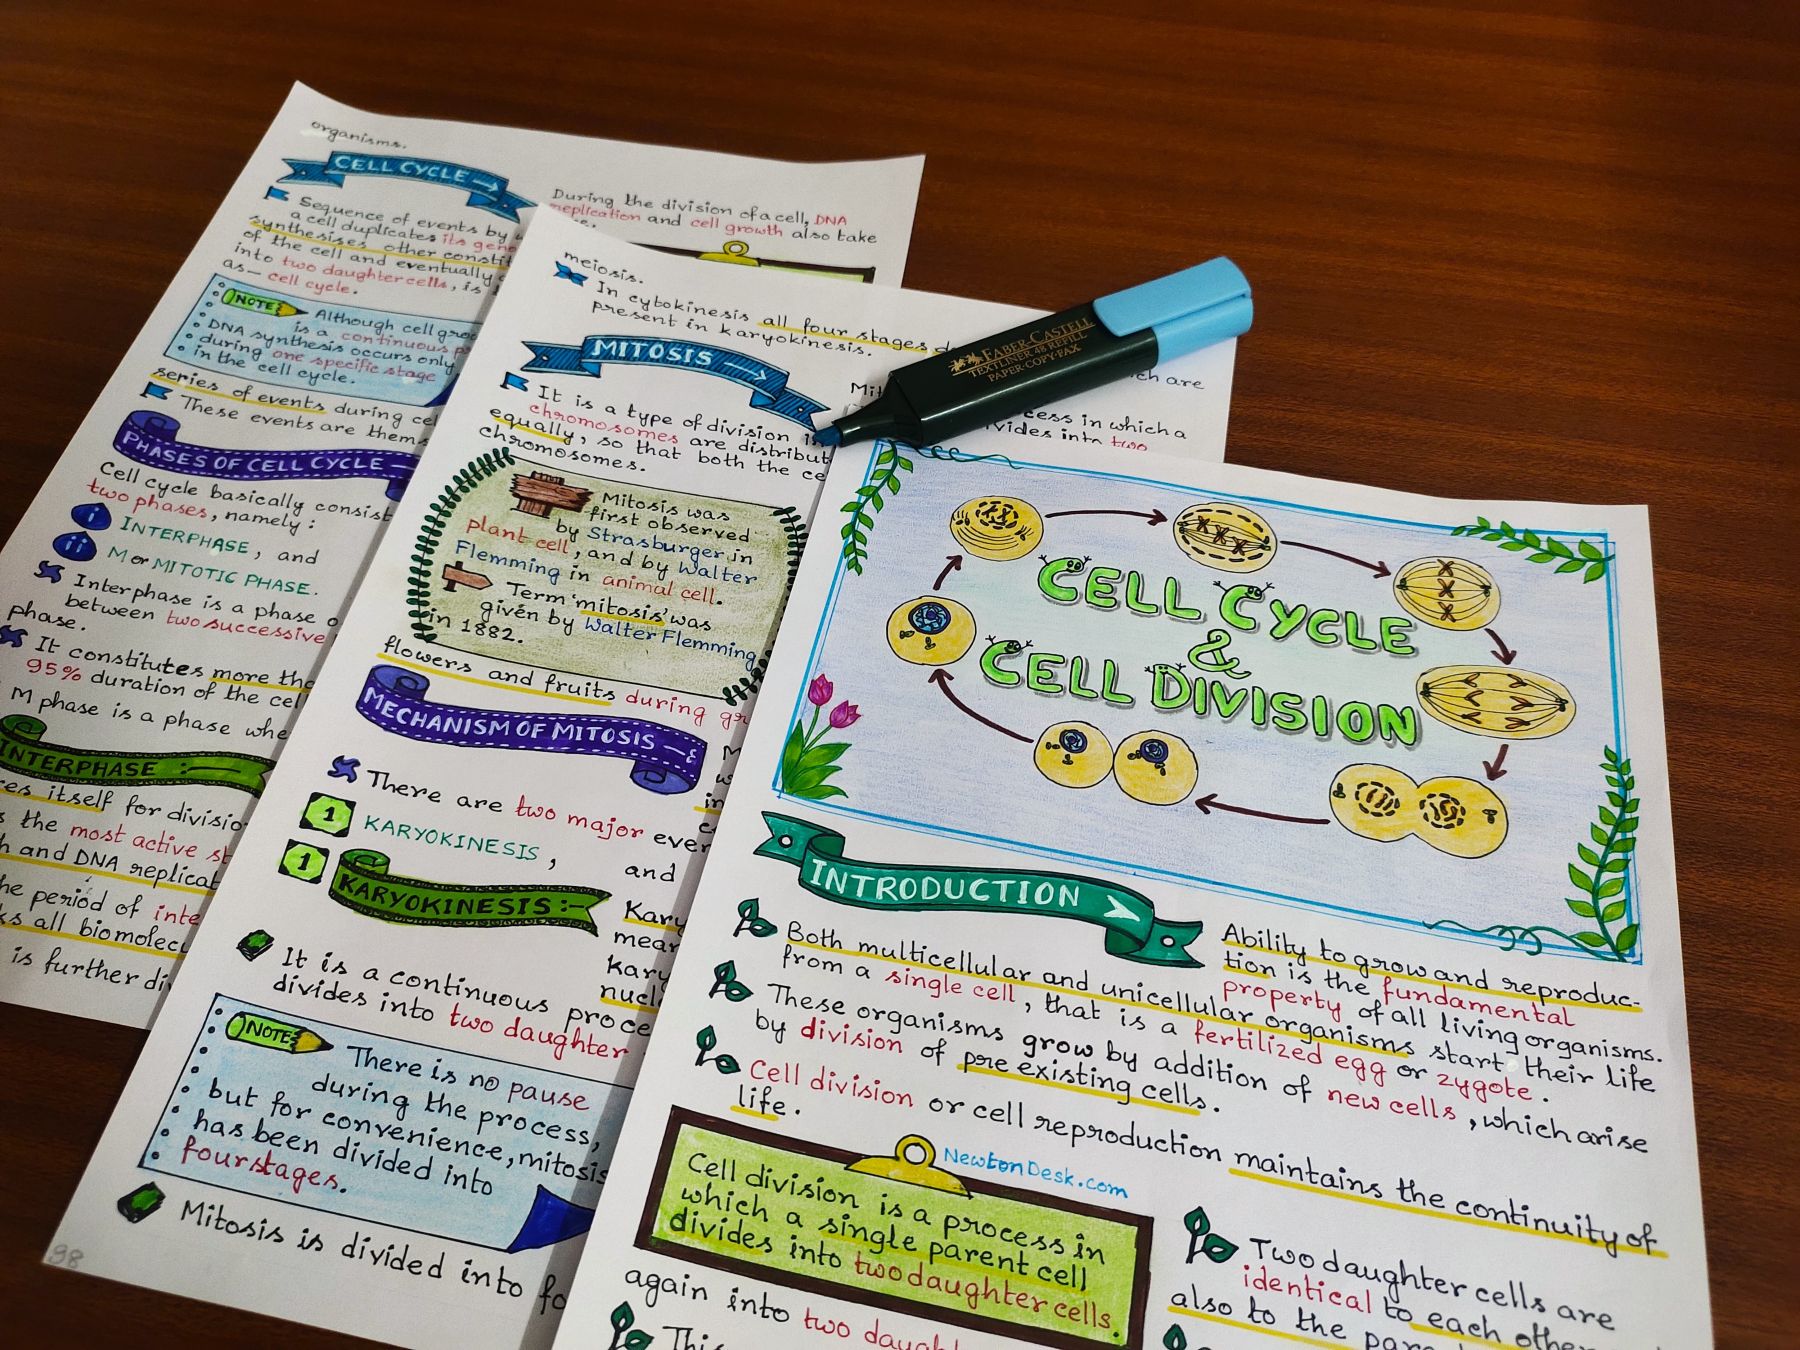 organisms.
CELL CYCLE
Sequence of events by
a cell duplicates its gen
synthesises other constit
of the cell and eventually
into two daughter cells, is
as— cell cycle.
NOTE
Although cell gro
is a continuous
DNA synthesis occurs only
during one specific stage
in the cell cycle.
series of events during ce
These events are them
PHASES OF CELL CYCLE
Cell cycle basically consist
two phases, namely :
i INTERPHASE, and
ii M or MITOTIC PHASE.
Interphase is a phase
between two successive
phase.
It constitutes more tha
95% duration of the cel
M phase is a phase whe
INTERPHASE :-
es itself for divisio
the most active st
and DNA replicat
he period of inte
ks all biomolecu
is further div
During the division of a cell, DNA
replication and cell growth also take
meiosis.
In cytokinesis all four stages
present in karyokinesis.
MITOSIS
It is a type of division
chromosomes are distribut
equally, so that both the ce
chromosomes.
Mitosis was
first observed
by Strasburger in
plant cell, and by Walter
Flemming in animal cell.
Term 'mitosis' was
given by Walter Flemming
in 1882.
flowers and fruits during gr
MECHANISM OF MITOSIS
There are two major even
1 KARYOKINESIS, and
1 KARYOKINESIS :-
Kary
mean
kary
nucl
It is a continuous proce
divides into two daughter
NOTE
There is no pause
during the process,
but for convenience, mitosis
has been divided into
four stages.
Mitosis is divided into fo
98
Mit
ich are
ocess in which a
ivides into two
FABER-CASTELL
TEXTLINER 48 REFILL
PAPER·COPY·FAX
CELL CYCLE
&
CELL DIVISION
INTRODUCTION
Ability to grow and reproduc-
tion is the fundamental
property of all living organisms.
Both multicellular and unicellular organisms start their life
from a single cell, that is a fertilized egg or zygote.
These organisms grow by addition of new cells, which arise
by division of pre existing cells.
Cell division or cell reproduction maintains the continuity of
life.
NewtonDesk.com
Cell division is a process in
which a single parent cell
divides into two daughter cells.
again into two daugh
This
Two daughter cells are
identical to each other
also to the pare